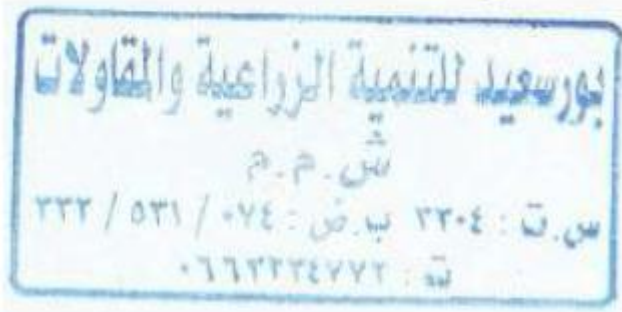 بورسعيد للتنمية الزراعية والمقاولات
ش.م.م
س.ت : ٢٣٠٤ ب.ض : ٠٧٤ / ٥٣١ / ٢٣٢
ت : ٠٦٦٣٢٢٤٧٧٢